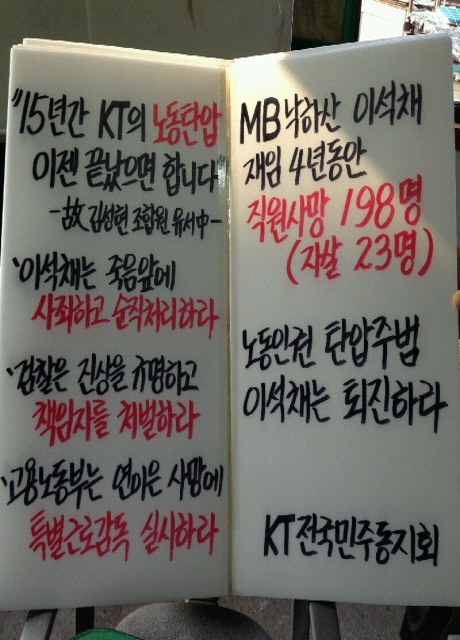 "15년간 KT의 노동탄압
이젠 끝났으면 합니다"
-故 김성현 조합원 유서中-
'이석채는 죽음앞에
사죄하고 순직처리하라
'검찰은 진상을 규명하고
책임자를 처벌하라
'고용노동부는 연이은 사망에
특별근로감독 실시하라
MB낙하산 이석채
재임 4년동안
직원사망 198명
(자살 23명)
노동인권 탄압주범
이석채는 퇴진하라
KT전국민주동지회